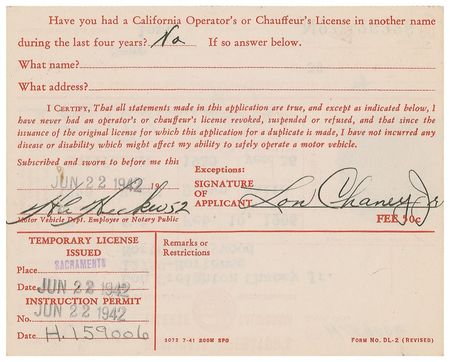 Have you had a California Operator's or Chauffeur's License in another name
during the last four years? No If so answer below.
What name?
What address?
I CERTIFY, That all statements made in this application are true, and except as indicated below, I
have never had an operator's or chauffeur's license revoked, suspended or refused, and that since
the issuance of the original license for which this application for a duplicate is made, I have not incurred any
disease or disability which might affect my ability to safely operate a motor vehicle.
Subscribed and sworn to before me this
Exceptions:
JUN 22 1942 19
SIGNATURE
OF
APPLICANT
Lon Chaney Jr
Motor Vehicle Dept. Employee or Notary Public
FEE 50c
TEMPORARY LICENSE
ISSUED
Place SACRAMENTO
Date JUN 22 1942
INSTRUCTION PERMIT
JUN 22 1942
No.
Date H. 159006
Remarks or
Restrictions
3072 7-41 200M SPO
FORM No. DL-2 (REVISED)